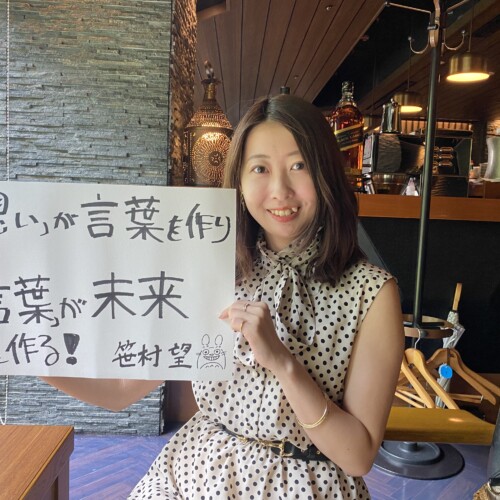 思い」が言葉を作り
言葉」が未来
作る!
笹村望